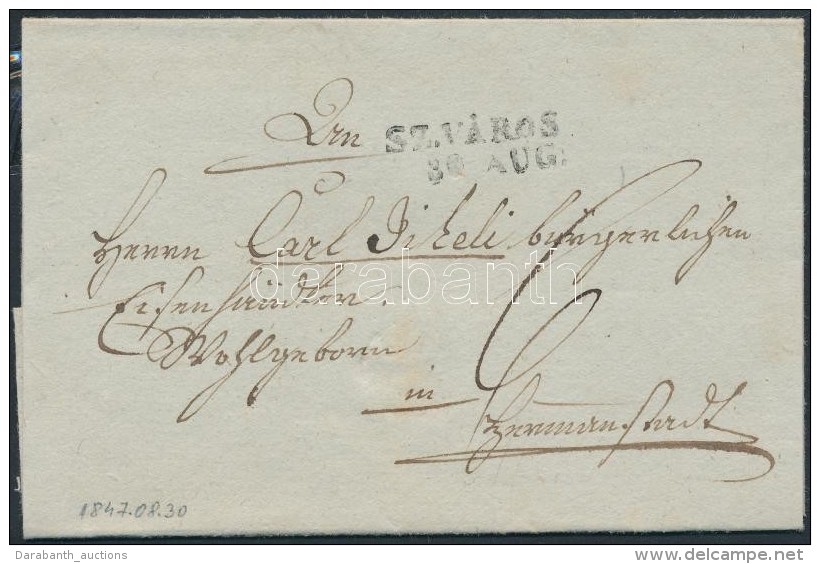 An
SZ.VÁROS
30 AUG:
Herrn Carl Jikeli bürgerlichen
darabanth
Eisenhändler.
Wohlgeborn
6
in
Hermanstadt
1847.08.30
Darabanth_auctions
www.delcampe.net